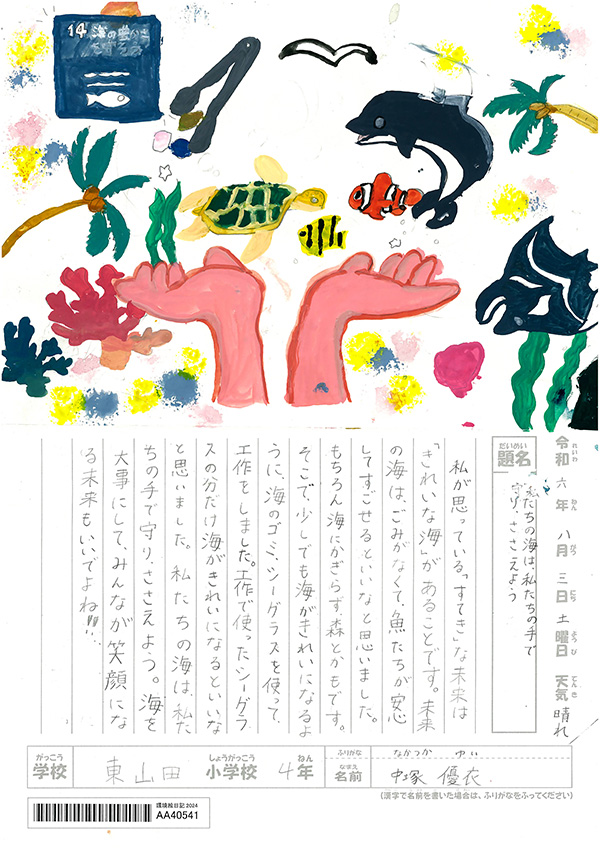 14 海の豊かさ
を守ろう
令和 六年 八月 三日 土曜日 天気 晴れ
れいわ ねん がつ にち ようび てんき
だいめい
題名
私たちの海は、私たちの手で
守り、ささえよう
私が思っている「すてき」な未来は
「きれいな海」があることです。未来
の海は、ごみがなくて、魚たちが安心
してすごせるといいなと思いました。
もちろん海にかぎらず、森とかもです。
そこで、少しでも海がきれいになるよ
うに、海のゴミ、シーグラスを使って、
工作をしました。工作で使ったシーグラ
スの分だけ海がきれいになるといいな
と思いました。私たちの海は、私た
ちの手で守り、ささえよう。海を
大事にして、みんなが笑顔にな
る未来もいいでよね!!!
がっこう
学校
東山田
しょうがっこう
小学校
4
ねん
年
ふりがな
なかつか ゆい
なまえ
名前
中塚 優衣
(漢字で名前を書いた場合は、ふりがなをふってください)
環境絵日記2024
AA40541